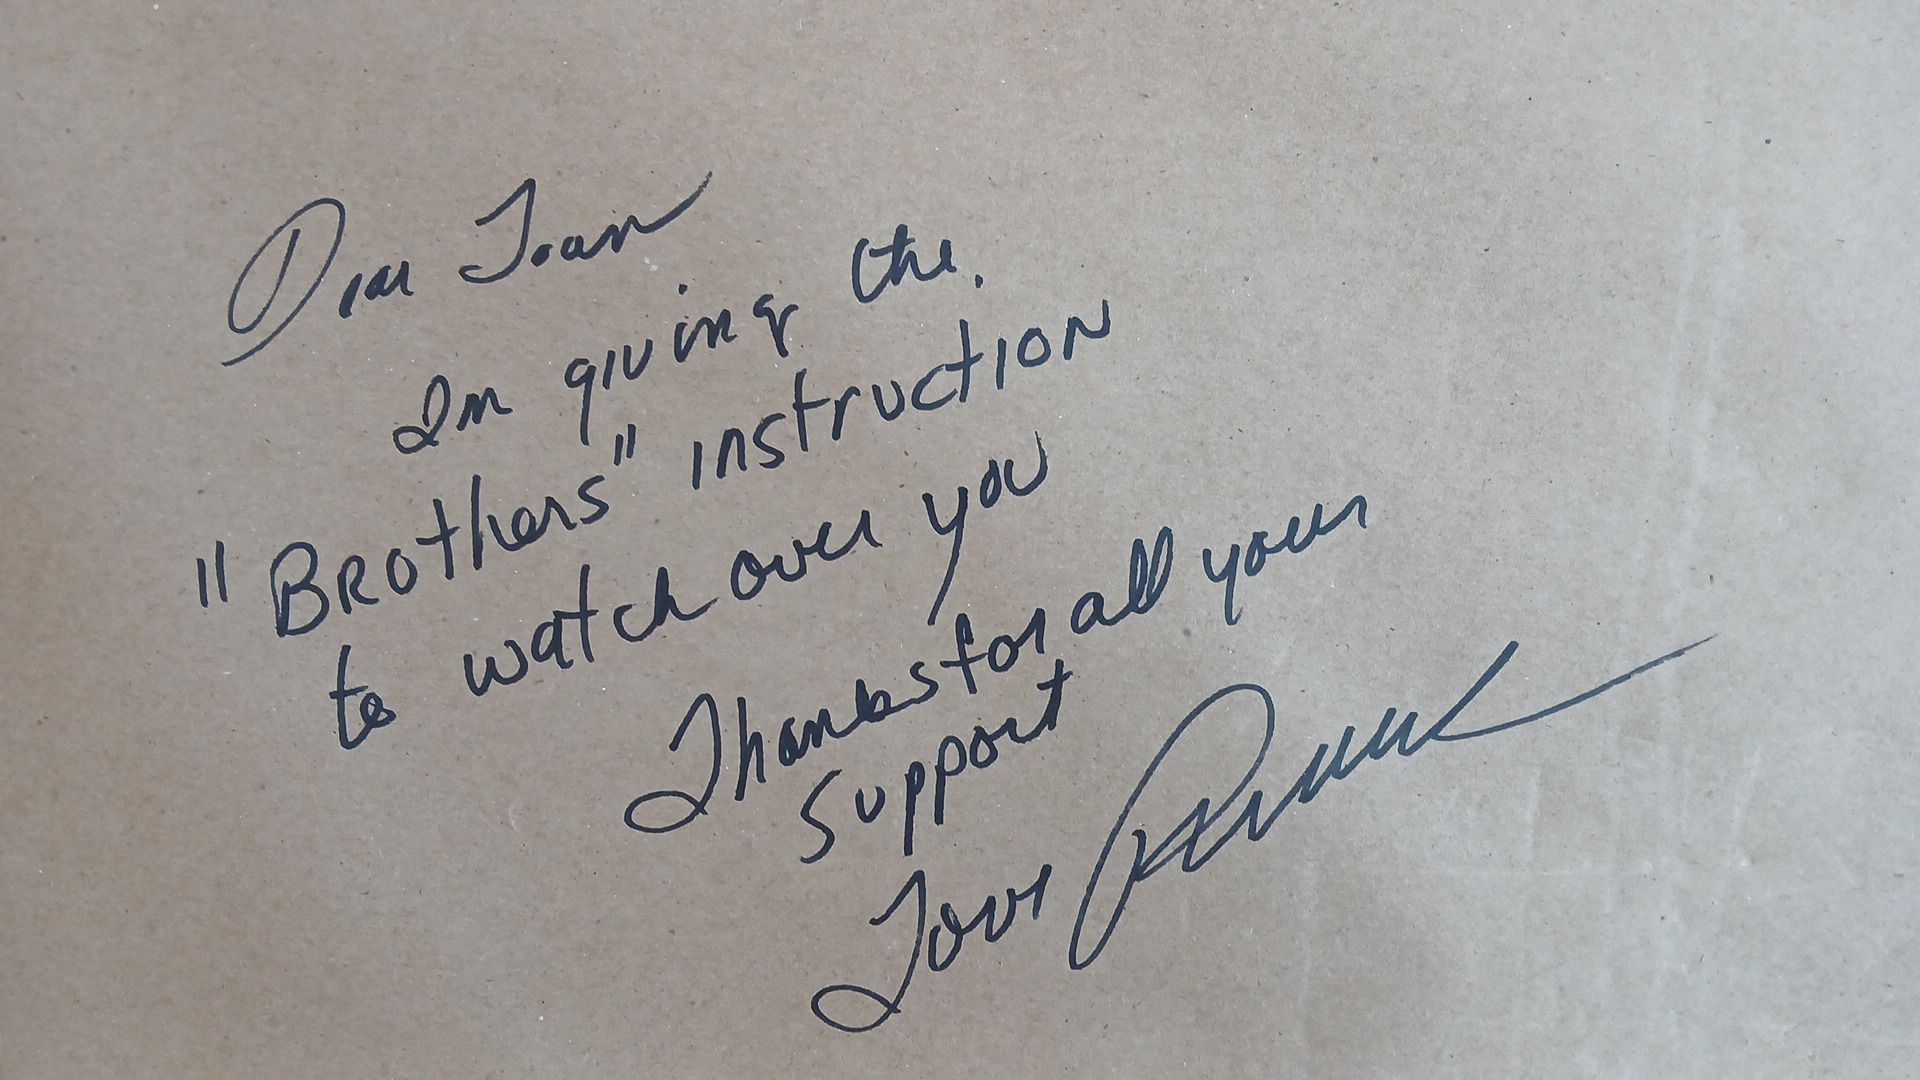 Dear Joan
Im giving the
"Brothers" instruction
to watch over you
Thanks for all your
support
Love